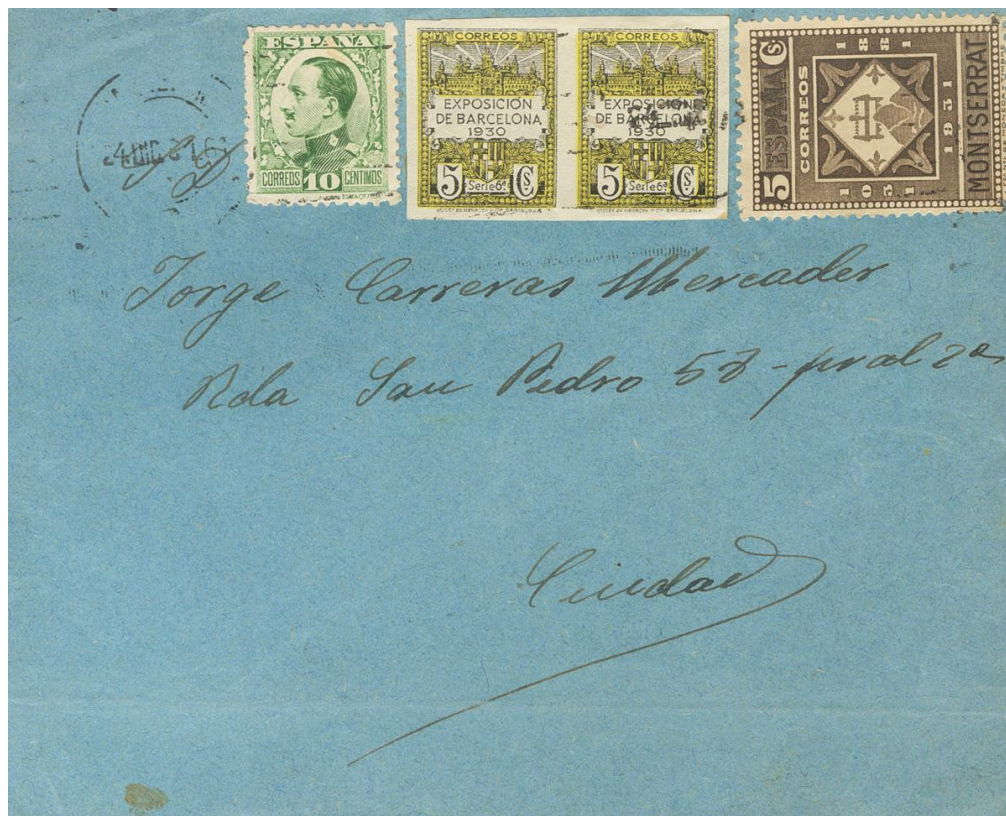 ESPAÑA
CORREOS 10 CENTIMOS
CORREOS
EXPOSICIÓN
DE BARCELONA
1930
5 Serie 6ª Cs
CORREOS
EXPOSICIÓN
DE BARCELONA
1930
5 Serie 6ª Cs
5 ESPAÑA Cs
CORREOS
881
1031
1931
MONTSERRAT
Jorge Carreras Mercader
Rda San Pedro 53 - pral 2ª
Ciudad